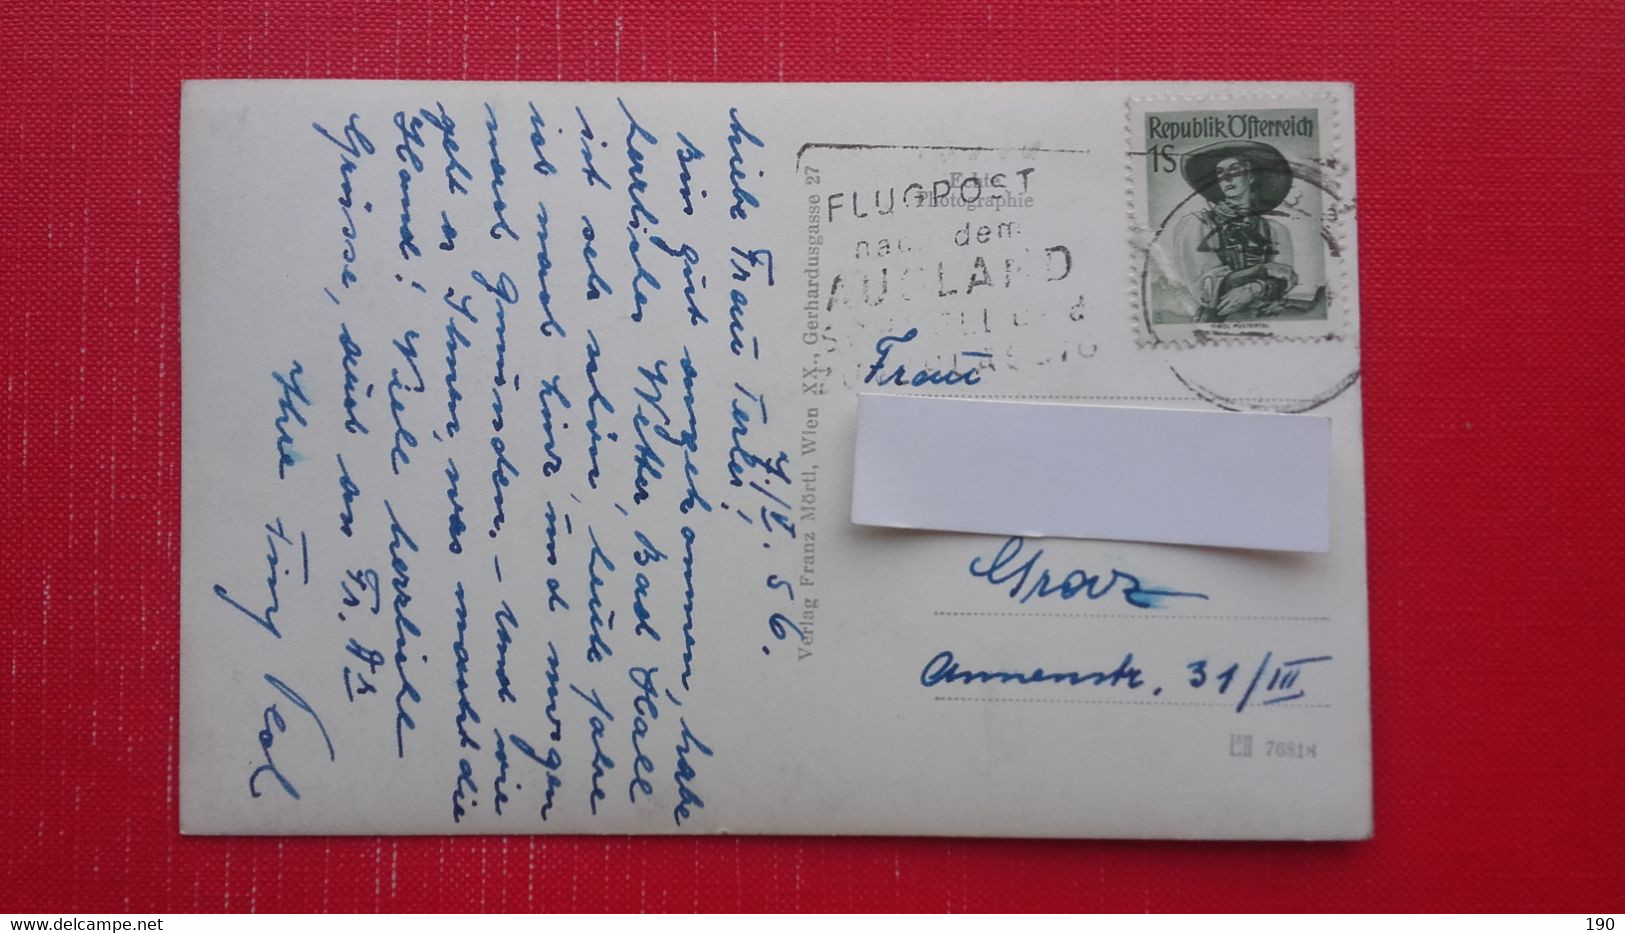 7./V. 56.
Liebe Frau Terler,
Bin gut angekommen, habe
herrliches Wetter, Bad Hall
ist sehr schön, heute fahre
ich nach Linz und morgen
nach Gmunden. - Und wie
geht es Ihnen, was macht die
Hand? Viele herzliche
Grüsse, auch an Fr. Dr
Ihre Finy
Verlag Franz Mörtl, Wien XX., Gerhardusgasse 27
Echte
Photographie
FLUGPOST
nach dem
AUSLAND
SCHNELL und
Republik Österreich
1S
TIROL PUSTERTAL
Frau
Graz
Annenstr. 31/III
76818
190